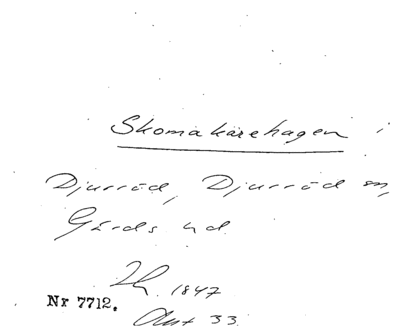 Skomakarehagen i
Djurröd, Djurröd sn,
Gärds hd
1847
Nr 7712.
33